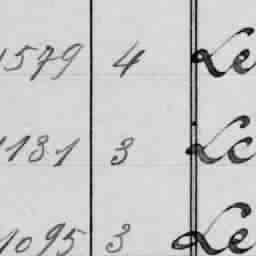 1579 4 Le
1131 3 Lc
1095 3 Le